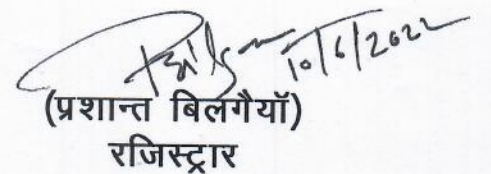 10/6/2022
(प्रशान्त बिलगैयॉ)
रजिस्ट्रार